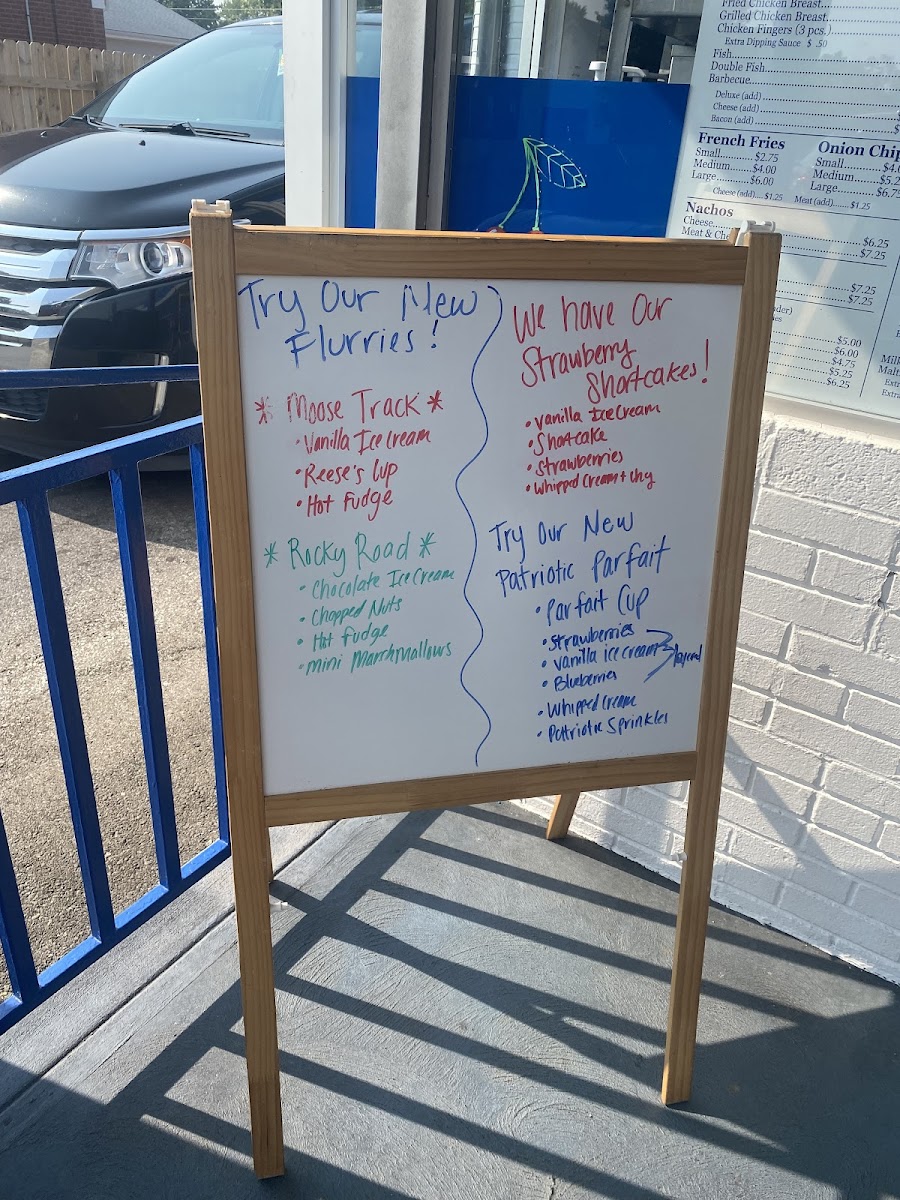 Try Our New
Flurries!
* Moose Track *
• Vanilla Ice Cream
• Reese's Cup
• Hot Fudge
* Rocky Road *
• Chocolate Ice Cream
• Chopped Nuts
• Hot Fudge
• Mini Marshmallows
We have Our
Strawberry
Shortcakes!
• Vanilla Ice Cream
• Shortcake
• Strawberries
• Whipped Cream +
Try Our New
Patriotic Parfait
• Parfait Cup
• Strawberries
• Vanilla ice cream
• Blueberries
layered
• Whipped Cream
• Patriotic Sprinkles
Fried Chicken Breast
Grilled Chicken Breast
Chicken Fingers (3 pcs.)
Extra Dipping Sauce $ .50
Fish
Double Fish
Barbecue
Deluxe (add)
Cheese (add)
Bacon (add)
French Fries
Small $2.75
Medium $4.00
Large $6.00
Cheese (add) $1.25
Onion Chip
Small
Medium
Large
Meat (add) $1.25
Nachos
Cheese $6.25
Meat & Ch $7.25
$7.25
$7.25
$5.00
$6.00
$4.75
$5.25
$6.25
Extra
Extra